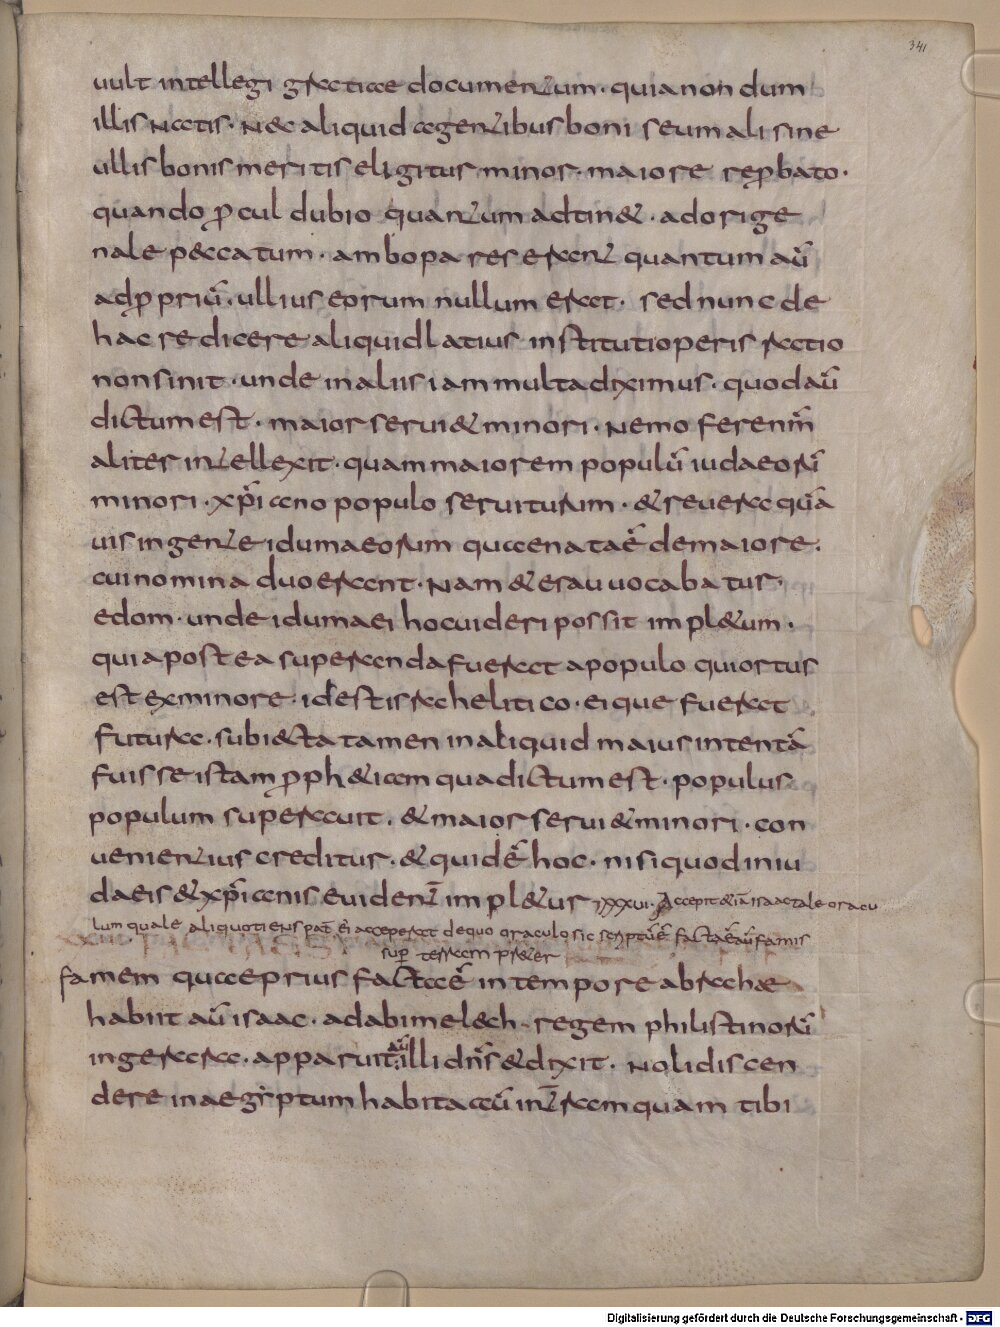 341
uult intellegi gratiae documentum · quia non dum
illis natis · nec aliquid agentibus boni seu mali sine
ullis bonis meritis eligitus minor · maiore rep̱bato ·
quando p̱cul dubio quantum adtin& · ad orige
nale p&catum · ambo pares erant quantum aū
ad p̱priū · ullius eorum nullum erat · sed nunc de
hac re dicere aliquid latius instituti operis ratio
non sinit · unde in aliis iam multa diximus · quod aū
dictum est · maior serui& minori · nemo feren m̄
aliter intellexit · quam maiorem populū iudaeorū
minori · xp̄iano populo seruiturum · & reuera quā
uis in gente idumaeorum quae nata ē de maiore ·
cui nomina duo erant · nam & esau uocabatur ·
edom · unde idumaei hoc uideri possit impl&um ·
quia postea superanda fuerat a populo qui ortus
est ex minore · id est israhelitico · eique fuerat
futura · subi&ta tamen in aliquid maius intentā
fuisse istam p̱ph&iam qua dictum est · populus
populum superauit · & maior serui& minori · con
uenientius creditur · & quid ē hoc · nisi quod in iu
daeis & xp̄ianis euident̄ impl&us XXXVI · Accepit & iā isaac tale oracu
lum quale aliquotiens pat̄ ei acceperat de quo oraculo sic scriptū ē facta ē aū famis
sup̱ terram pr&er
famem quae prius facta ē in tempore abrahae
habiit aū isaac · ad abimelech · regem philistinorū
in gerara · apparuit aū illi dn̄s & dixit · noli discen
dere in aegiptum habita aū in terram quam tibi
Digitalisierung gefördert durch die Deutsche Forschungsgemeinschaft - DFG